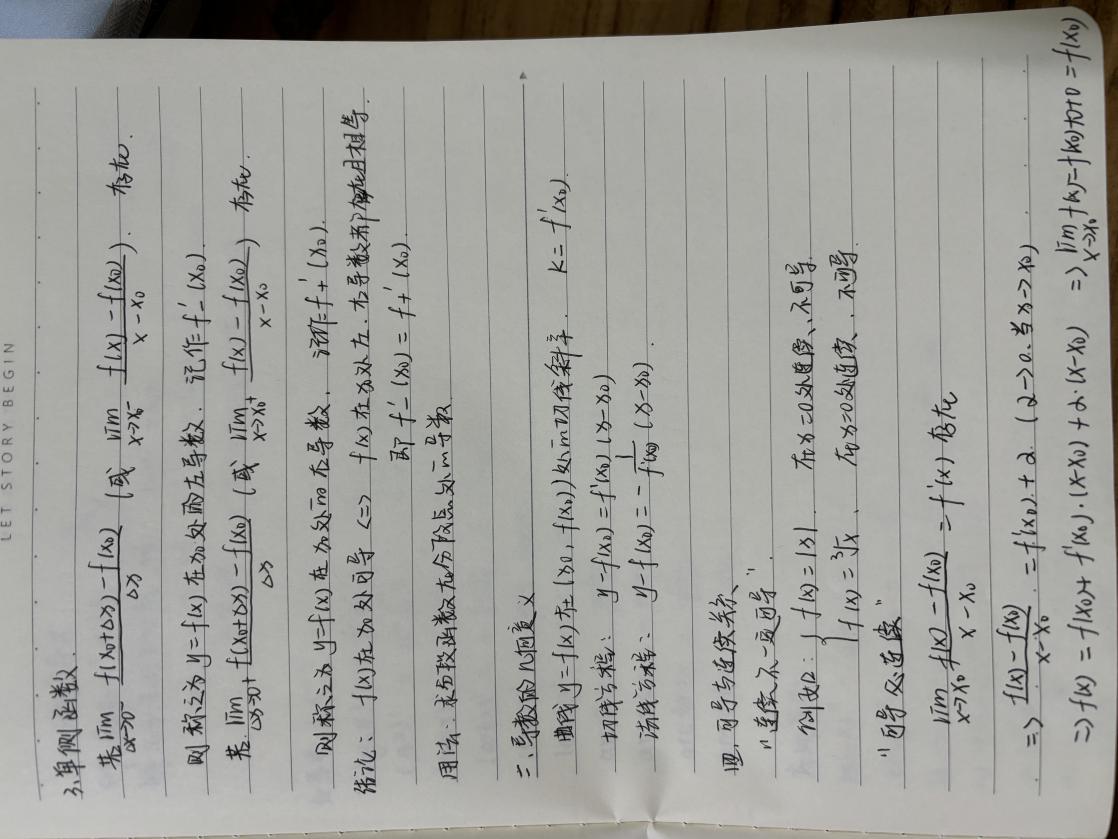 LET STORY BEGIN
3.单侧函数.
若 lim Δx→0⁻ (f(x0+Δx)-f(x0))/Δx (或 lim x→x0⁻ (f(x)-f(x0))/(x-x0)). 存在.
则称之为y=f(x)在x0处的左导数. 记作=f'-(x0).
若 lim Δx→0+ (f(x0+Δx)-f(x0))/Δx (或 lim x→x0+ (f(x)-f(x0))/(x-x0)) 存在.
则称之为y=f(x)在x0处的右导数. 记作=f+'(x0).
结论: f(x)在x0处可导 <=> f(x)在x0处左、右导数都存在且相等.
即 f'-(x0) = f+'(x0).
用法: 求分段函数在分段点处的导数
二、导数的几何意义
曲线y=f(x)在(x0, f(x0))处的切线斜率. k= f'(x0).
切线方程: y-f(x0)=f'(x0)(x-x0)
法线方程: y-f(x0)=-1/f'(x0) (x-x0).
四、可导与连续关系
"连续不一定可导".
例如: { f(x)=|x|. 在x=0处连续、不可导.
f(x)=³√x、 在x=0处连续、不可导.
"可导必连续"
lim x→x0 (f(x)-f(x0))/(x-x0) = f'(x) 存在
=> (f(x)-f(x0))/(x-x0) = f'(x0)+α. (α→0.当x→x0)
=> f(x) = f(x0)+f'(x0)·(x-x0)+α·(x-x0) => lim x→x0 f(x)=f(x0)+0+0=f(x0)